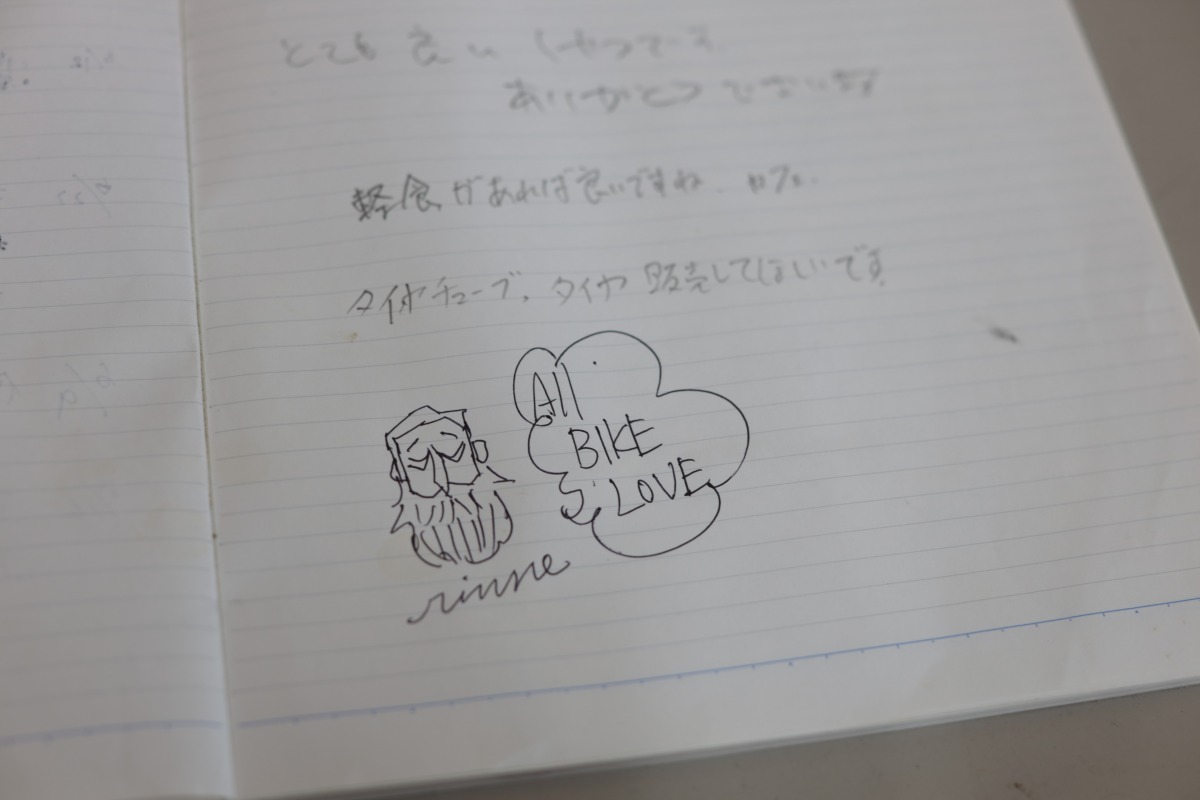 とても 良い
ありがとうございます
軽食があれば良いですね、カフェ.
タイヤチューブ、タイヤ 販売してほしいです
All
BIKE
LOVE
rinne